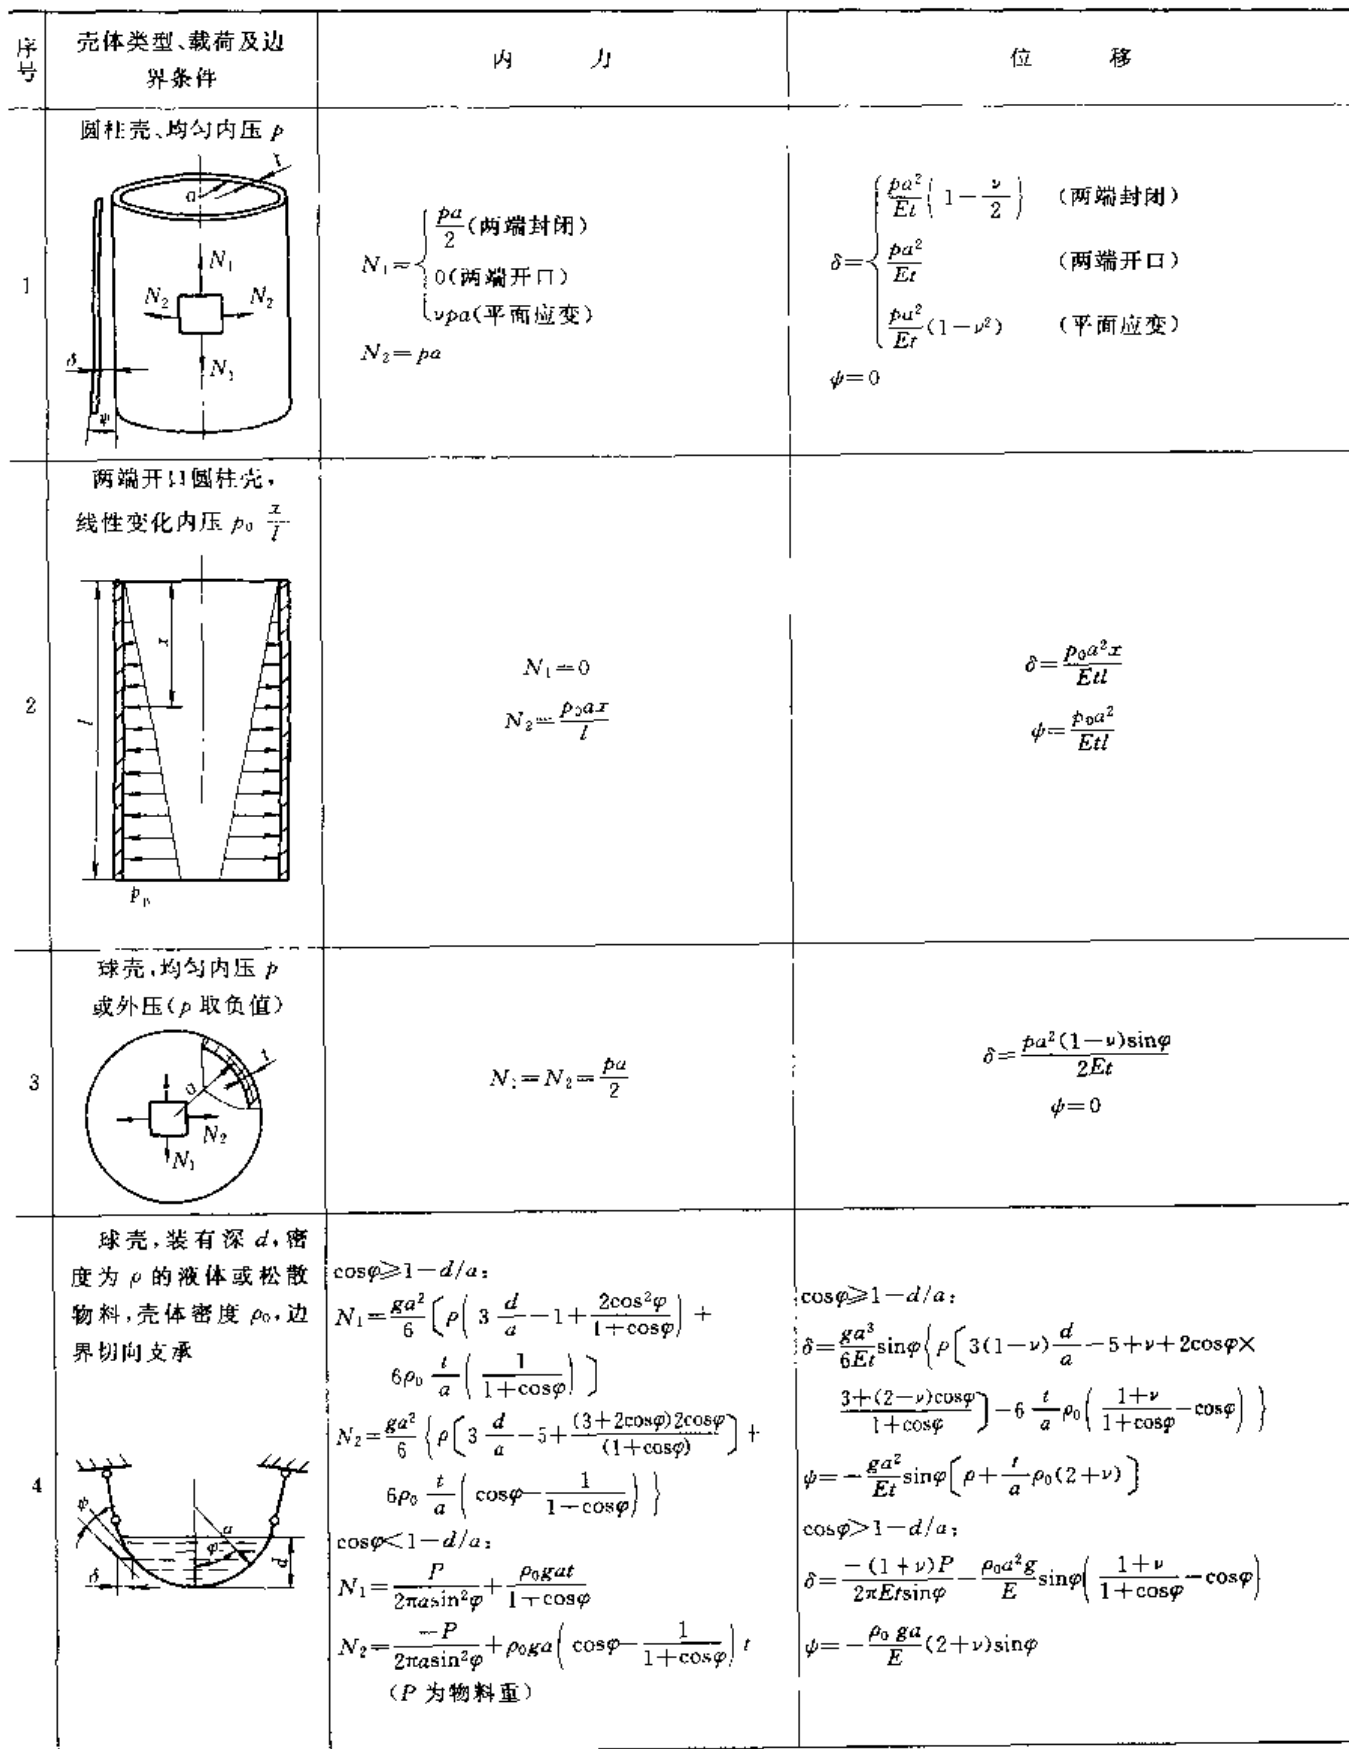 序号 壳体类型、载荷及边界条件 内 力 位 移
圆柱壳、均匀内压 p
1
t
a
N₁
N₂ N₂
N₁
δ
ψ
N₁= { pa/2 (两端封闭)
0(两端开口)
νpa(平面应变)
N₂=pa
δ= { pa²/Et (1-ν/2) (两端封闭)
pa²/Et (两端开口)
pa²/Et (1-ν²) (平面应变)
ψ=0
两端开口圆柱壳,
线性变化内压 p₀ x/l
2
x
l
p₀
N₁=0
N₂=p₀ax/l
δ=p₀a²x/Etl
ψ=p₀a²/Etl
球壳,均匀内压 p
或外压(p 取负值)
3
a
t
N₂
N₁
N₁=N₂=pa/2
δ=pa²(1-ν)sinφ/2Et
ψ=0
球壳,装有深 d,密
度为 ρ 的液体或松散
物料,壳体密度 ρ₀,边
界切向支承
4
ψ
a
φ
d
δ
cosφ≥1-d/a:
N₁=ga²/6 [ρ(3 d/a -1+ 2cos²φ/(1+cosφ))+
6ρ₀ t/a (1/(1+cosφ))]
N₂=ga²/6 {ρ[3 d/a -5+ (3+2cosφ)2cosφ/(1+cosφ)]+
6ρ₀ t/a (cosφ- 1/(1-cosφ))}
cosφ<1-d/a:
N₁=P/2πasin²φ + ρ₀gat/(1+cosφ)
N₂=-P/2πasin²φ +ρ₀ga(cosφ- 1/(1+cosφ))t
(P 为物料重)
cosφ≥1-d/a:
δ=ga³/6Et sinφ{ρ[3(1-ν) d/a -5+ν+2cosφ×
(3+(2-ν)cosφ)/(1+cosφ)]-6 t/a ρ₀((1+ν)/(1+cosφ) -cosφ)}
ψ=- ga²/Et sinφ[ρ+ t/a ρ₀(2+ν)]
cosφ>1-d/a:
δ=-(1+ν)P/2πEtsinφ - ρ₀a²g/E sinφ((1+ν)/(1+cosφ) -cosφ)
ψ=- ρ₀ga/E (2+ν)sinφ